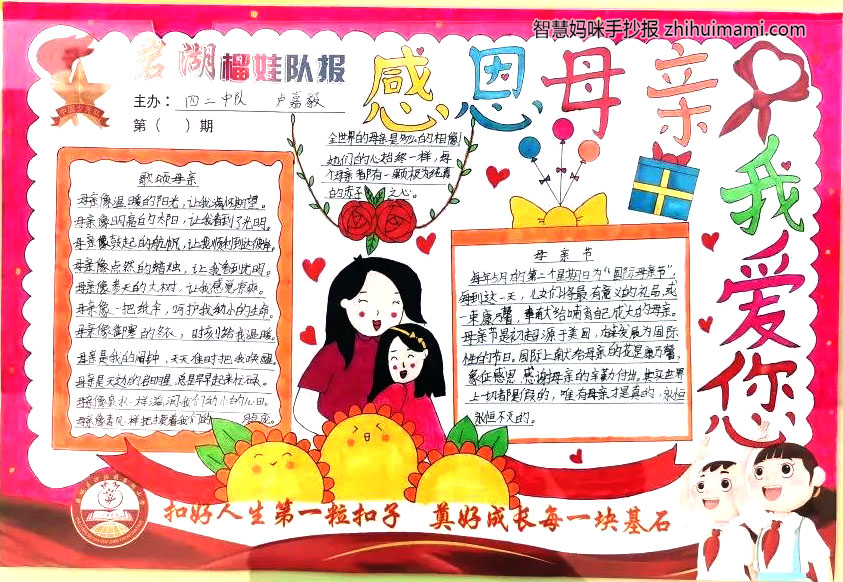 智慧妈咪手抄报 zhihuimami.com
岩湖榴娃队报
主办：四二中队 卢嘉毅
第（ ）期
感恩母亲
我爱您
全世界的母亲是多么的相像！
她们的心始终一样，每
个母亲都有一颗极为纯真
的赤子之心。
歌颂母亲
母亲像温暖的阳光，让我满怀期望。
母亲像明亮的太阳，让我看到了光明。
母亲像鼓起的船帆，让我顺利到达彼岸。
母亲像点燃的蜡烛，让我看到光明。
母亲像参天的大树，让我感觉凉爽。
母亲像一把雨伞，呵护我幼小的生命。
母亲像御寒的冬衣，时刻给我温暖。
母亲是我的闹钟，天天准时把我唤醒。
母亲是天边的启明星，总是早早起来忙碌。
母亲像泉水一样滋润我们的小的心田。
母亲像春风一样把抚摸着我们的
母亲节
每年5月的第二个星期日为“国际母亲节”，
每到这一天，儿女们将最有意义的礼品或
一束康乃馨，奉献给哺育自己成大的母亲。
母亲节是初起源于美国，在发展为国际
性的节日。国际上献给母亲的花是康乃馨，
象征感恩，感谢母亲的辛勤付出。其实世界
上一切都是假的，唯有母亲才是真的，永恒
永恒不灭的。
扣好人生第一粒扣子 奠好成长每一块基石